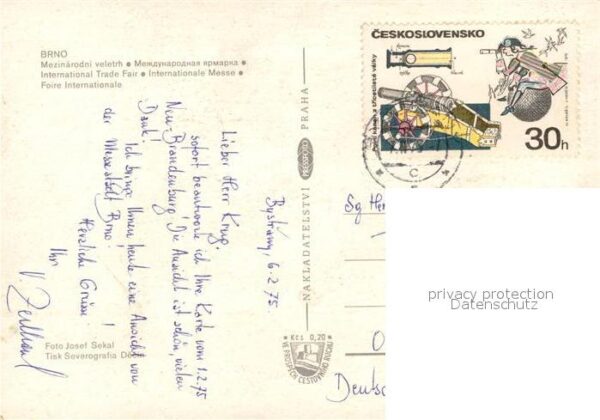 BRNO
Mezinárodní veletrh ● Международная ярмарка ●
International Trade Fair ● Internationale Messe ●
Foire Internationale
Bystrany, 6.2.75
Lieber Herr Krug,
sofort beantworte ich Ihre Karte vom 1.2.75
Neu-Brandenburg. Die Ansicht ist schön, vielen
Dank.
Ich bringe Ihnen heute eine Ansicht von
der Messestadt Brno!
Herzliche Grüsse!
Ihr
V.
Foto Josef Sekal
Tisk Severografia Děč
NAKLADATELSTVÍ PRESSFOTO PRAHA
Kčs 0,20
VE PROSPĚCH CESTOVNÍHO RUCHU
ČESKOSLOVENSKO
kanón z třicetileté války
30h
C
Sg Her
Deutsc
privacy protection
Datenschutz